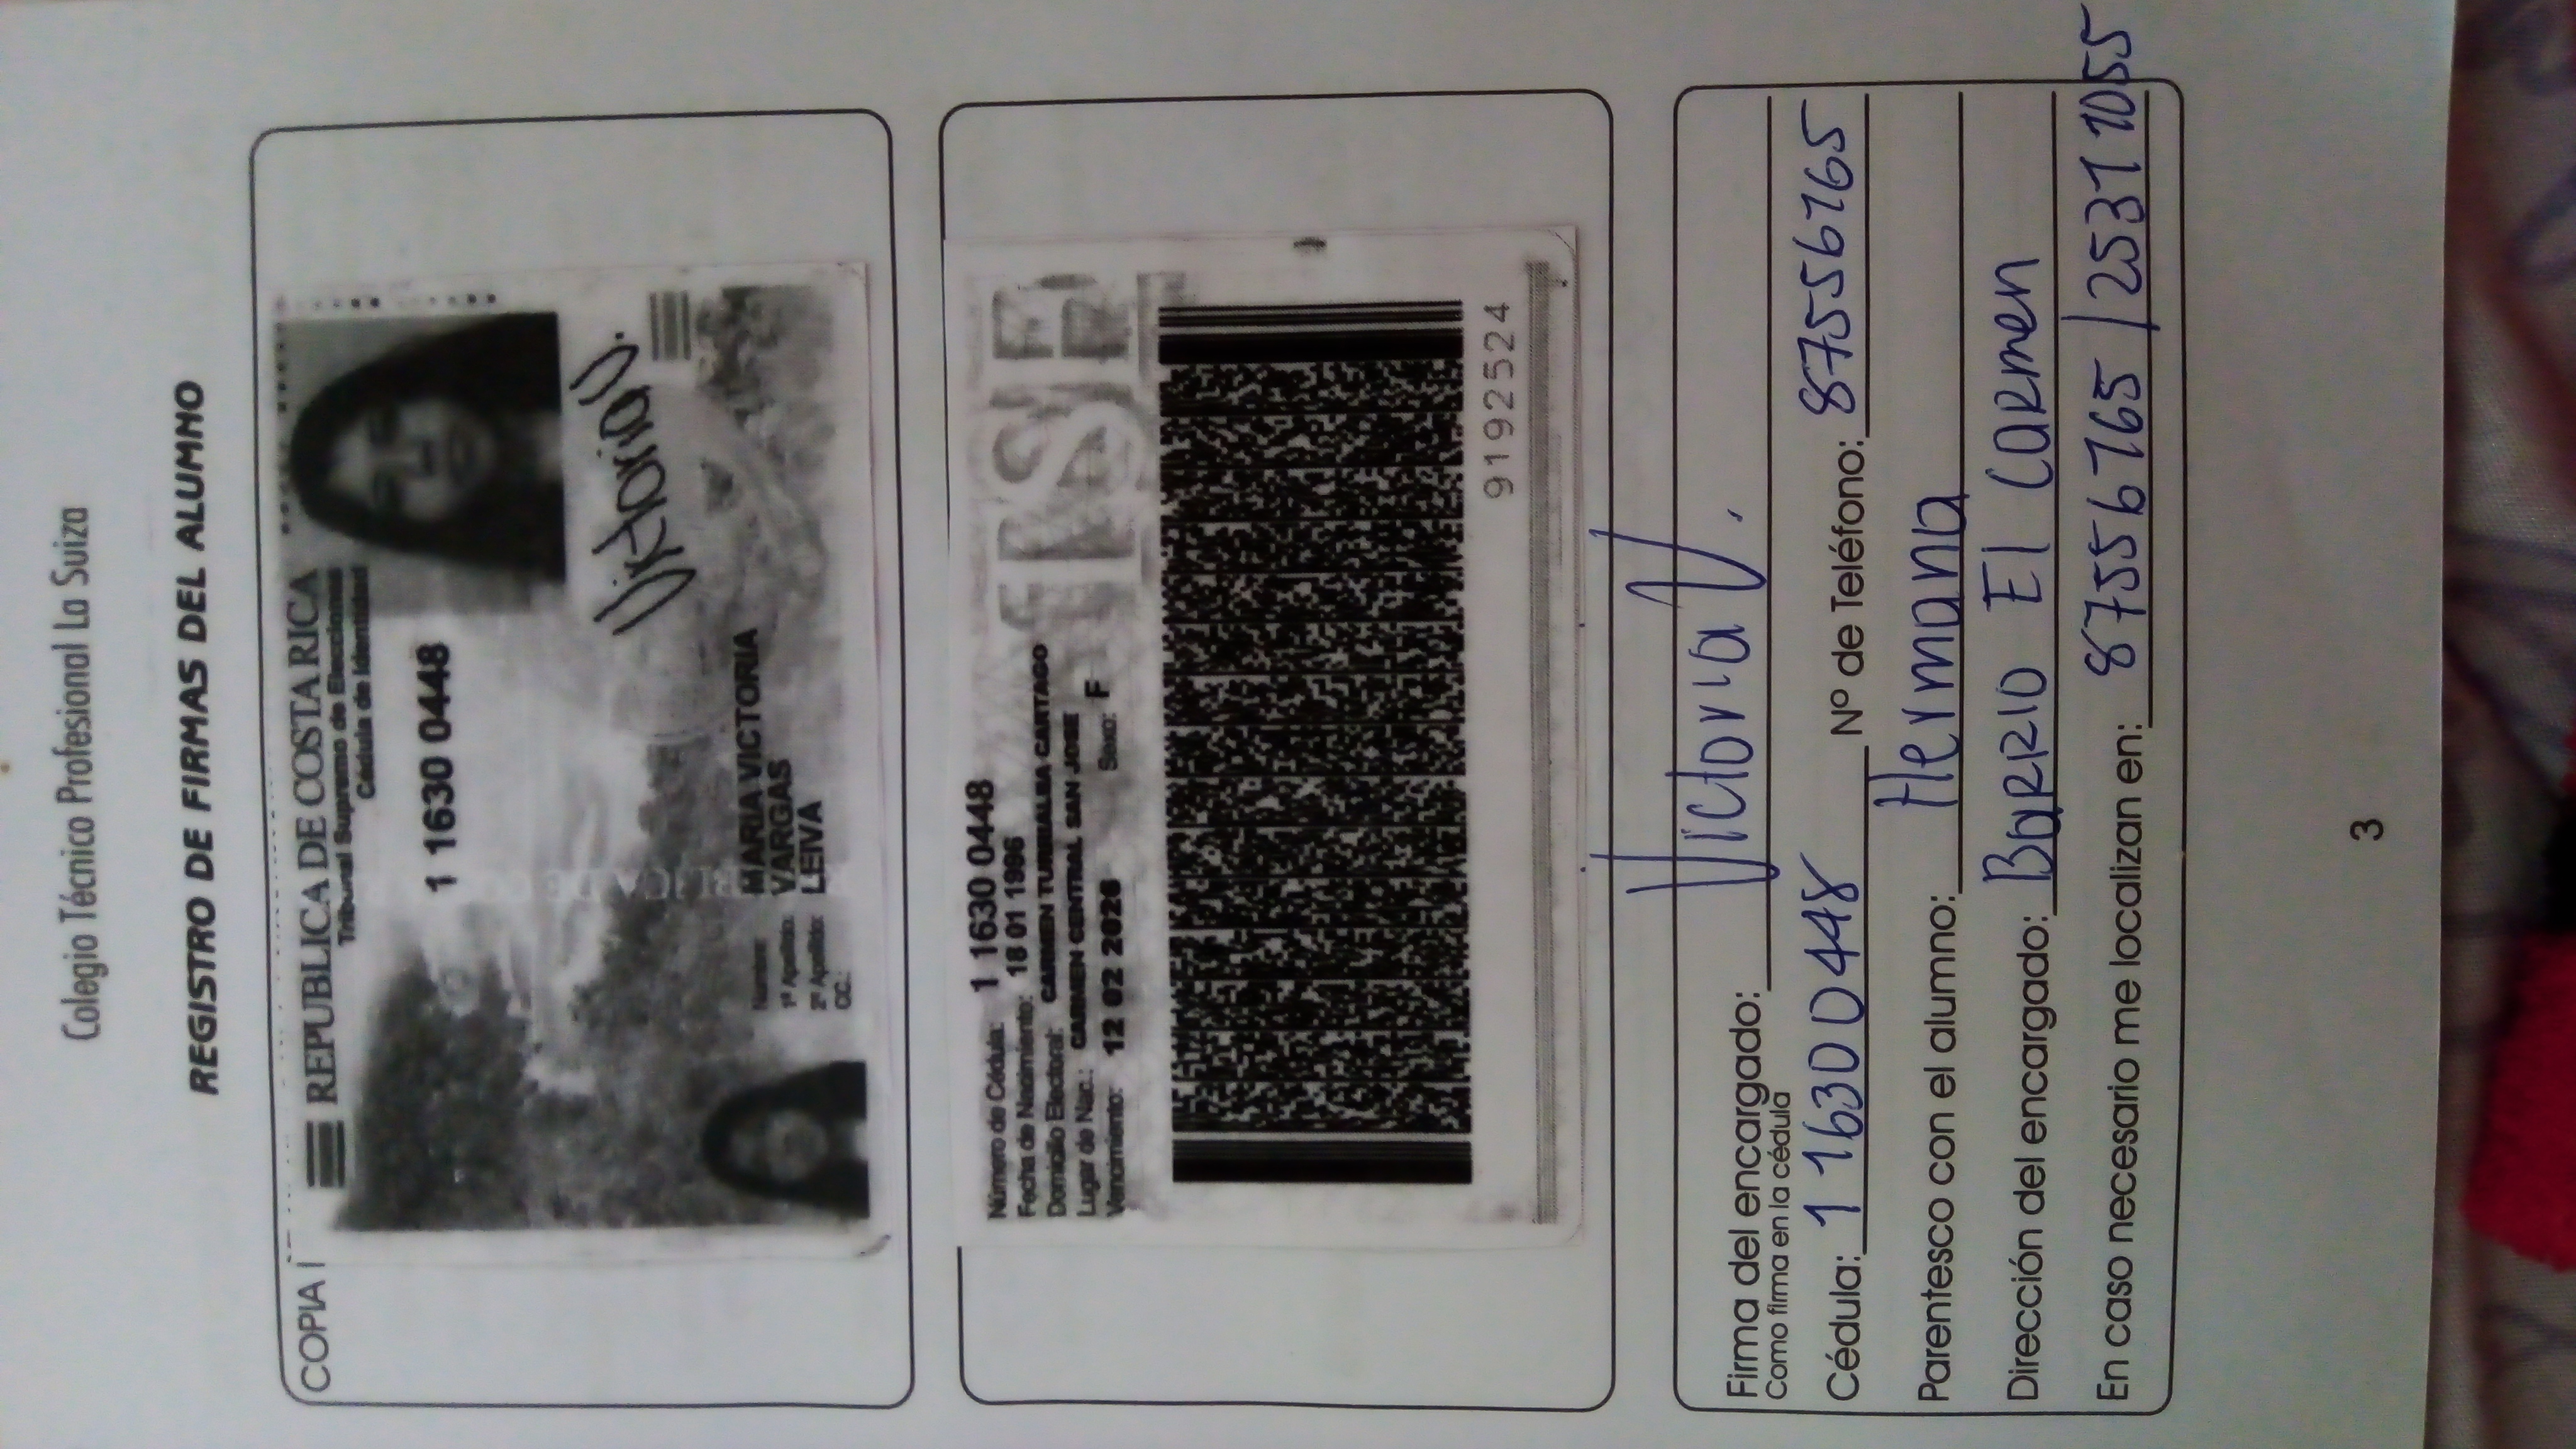 Colegio Técnico Profesional La Suiza
REGISTRO DE FIRMAS DEL ALUMNO
COPIA
REPUBLICA DE COSTA RICA
Tribunal Supremo de Elecciones
Cédula de Identidad
1 1630 0448
Victoria V.
Nombre: MARIA VICTORIA
1º Apellido: VARGAS
2º Apellido: LEIVA
CC.:
Número de Cédula: 1 1630 0448
Fecha de Nacimiento: 18 01 1996
Domicilio Electoral: CARMEN TURRIALBA CARTAGO
Lugar de Nac.: CARMEN CENTRAL SAN JOSE
Vencimiento: 12 02 2026 Sexo: F
TSE
9192524
Firma del encargado: Victoria V.
Como firma en la cédula
Cédula: 1 1630 0448 Nº de Teléfono: 87556765
Parentesco con el alumno: Hermana
Dirección del encargado: Barrio El Carmen
En caso necesario me localizan en: 87556765 / 25311055
3